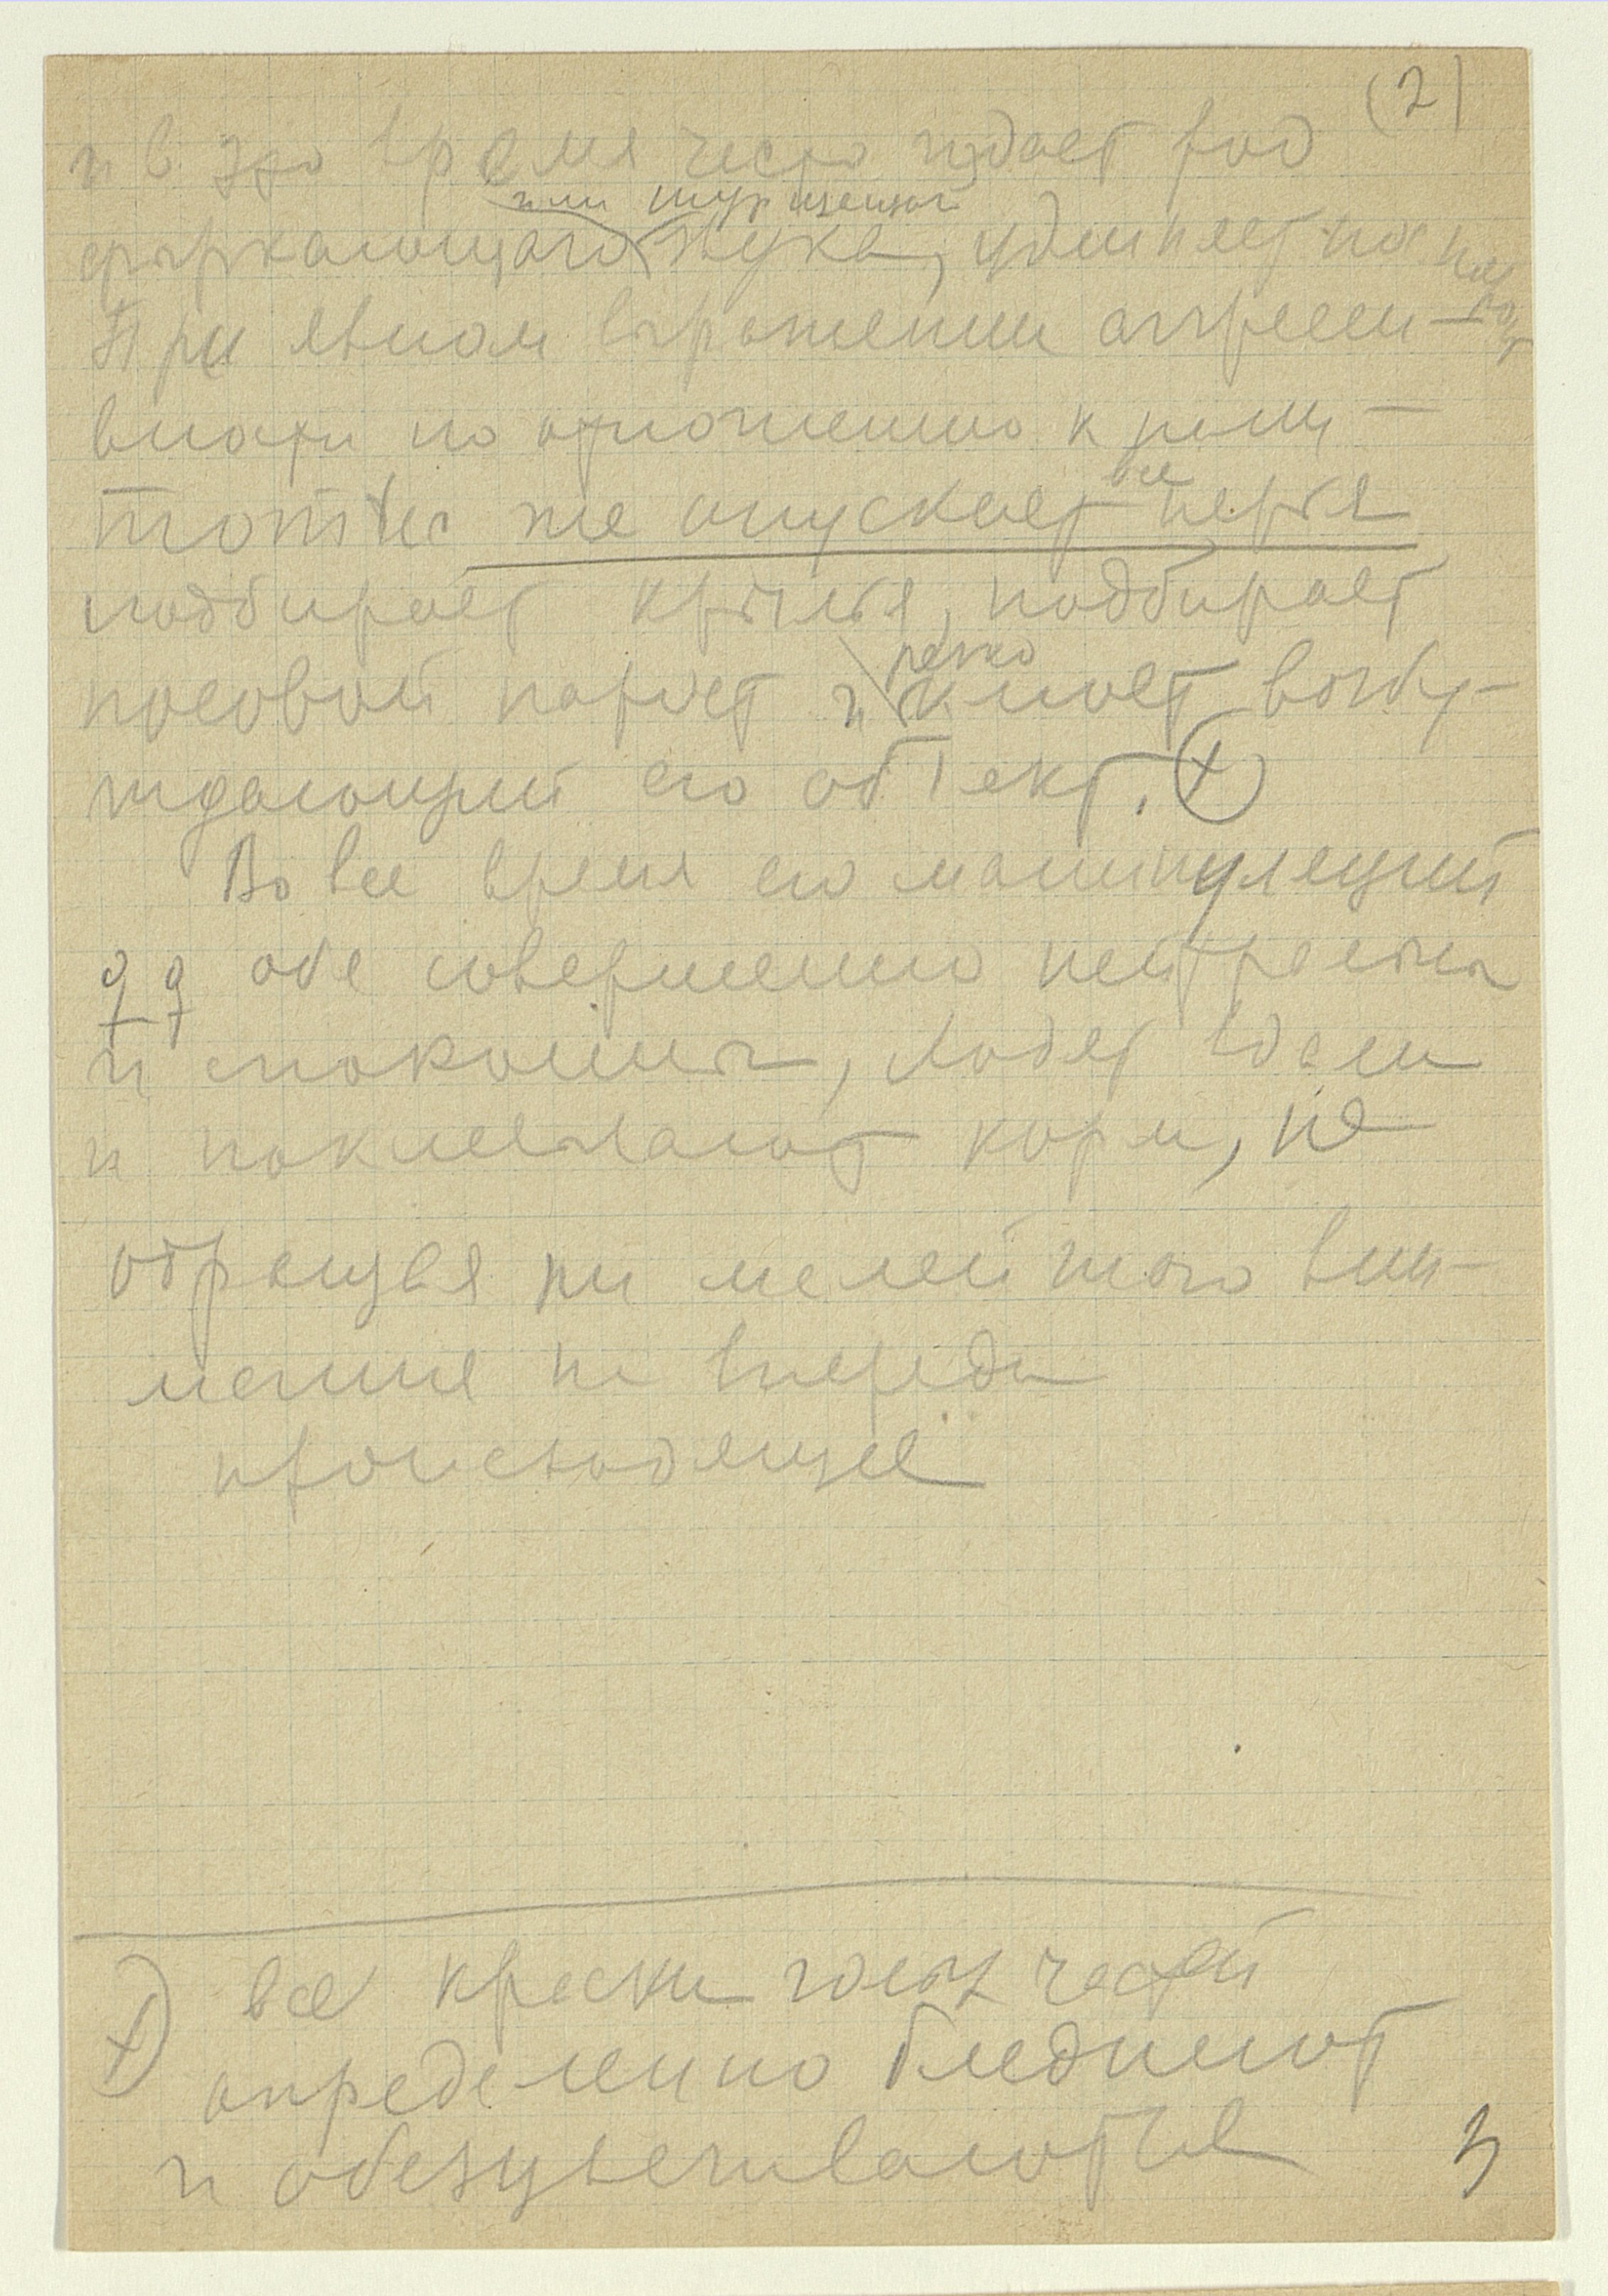 (2)
и в это время часто издает род
или шипящего
фыркающаго звука, удлиняет нос
При явном выражении агресси-
вности по отношению к кому-
тотчас же опускает все перья
подбирает крылья, подбирает
носовой нарост и резко клюет возбу-
ждающий его обʼект. (+)
Во все время его манипуляций
♀♀ обе совершенно нейтральны
и спокойны, ходят вдали
и поклевывают корм, не
обращая ни малейшего вни-
мания на впереди
происходящее
+) все краски голых частей
определенно бледнеют
и обезцвечиваются
3